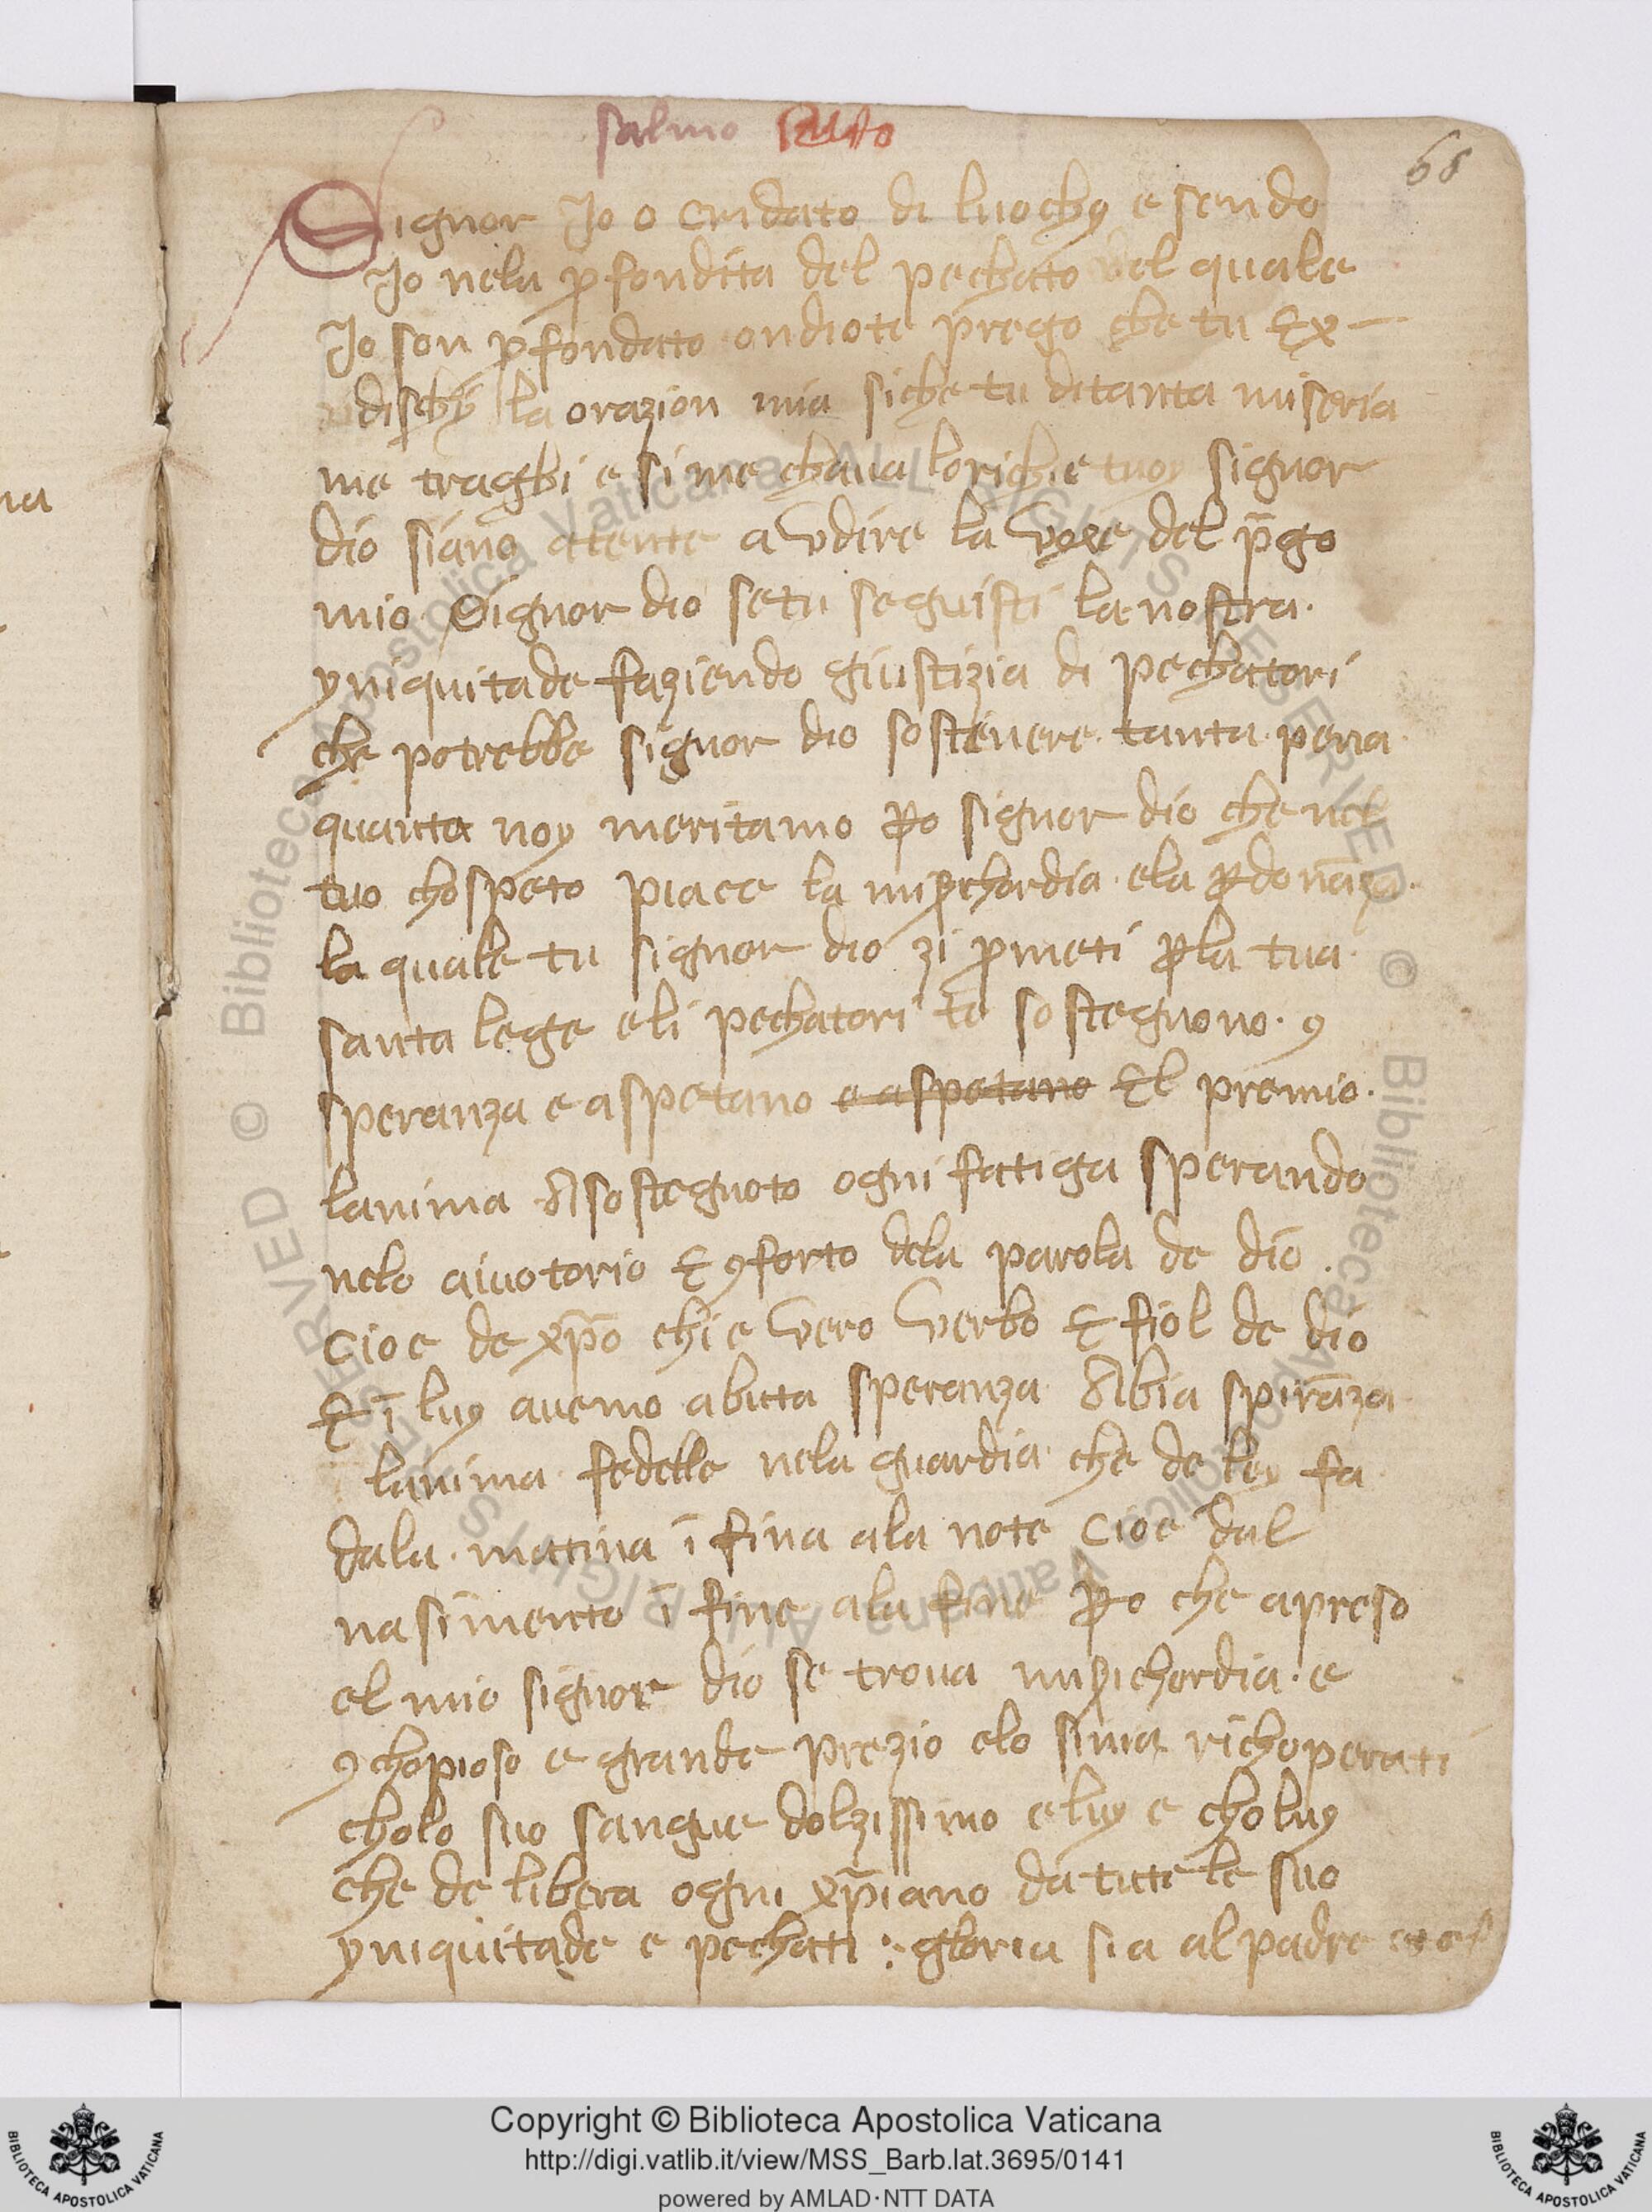 salmo sesto
68
Signor Jo o cridato di luochy e sendo
Jo nela ꝓfondita del pechato del quale
Jo son ꝓfondato ondiote prego che tu Ex-
udischi la orazion mia siche tu ditanta miseria
me traghi e si me chaua lorichie tuoy signor
dio siano atente a vdire la voxe del p̄go
mio Signor dio setu seguisti la nostra.
yniquitade faziendo giustizia di pechatori
che potrebbe signor dio sostenere tanta pena
quanta noy meritamo ꝑo signor dio che nel
tuo chospeto piace la miȝchordia ela ꝑdonāza.
la quale tu signor dio zi ꝓmeti ꝑla tua
santa lege eli pechatori te sostegnono. ꝯ
speranza e aspetano e aspetano El premio.
lanima A sostegnoto ogni fatiga sperando
nelo aiuotorio E ꝯforto dela parola de dio.
cioe de xp̄o chi e vero verbo E fiol de dio
E ī luy auemo abuta speranza Abia spirāza
lanima fedelle nela guardia che de ley fa
dala matina īfina ala note cioe dal
nasimento īfine ala fine ꝑo che apreso
el mio signore dio se troua miȝichordia. e
ꝯ chopioso e grande prezio elo sima richoperati
cholo suo sangue dolzissimo eluy e choluy
che de libera ogni xp̄iano da tute le suo
yniquitade e pechati :~ gloria sia al padre
Copyright © Biblioteca Apostolica Vaticana
http://digi.vatlib.it/view/MSS_Barb.lat.3695/0141
powered by AMLAD·NTT DATA